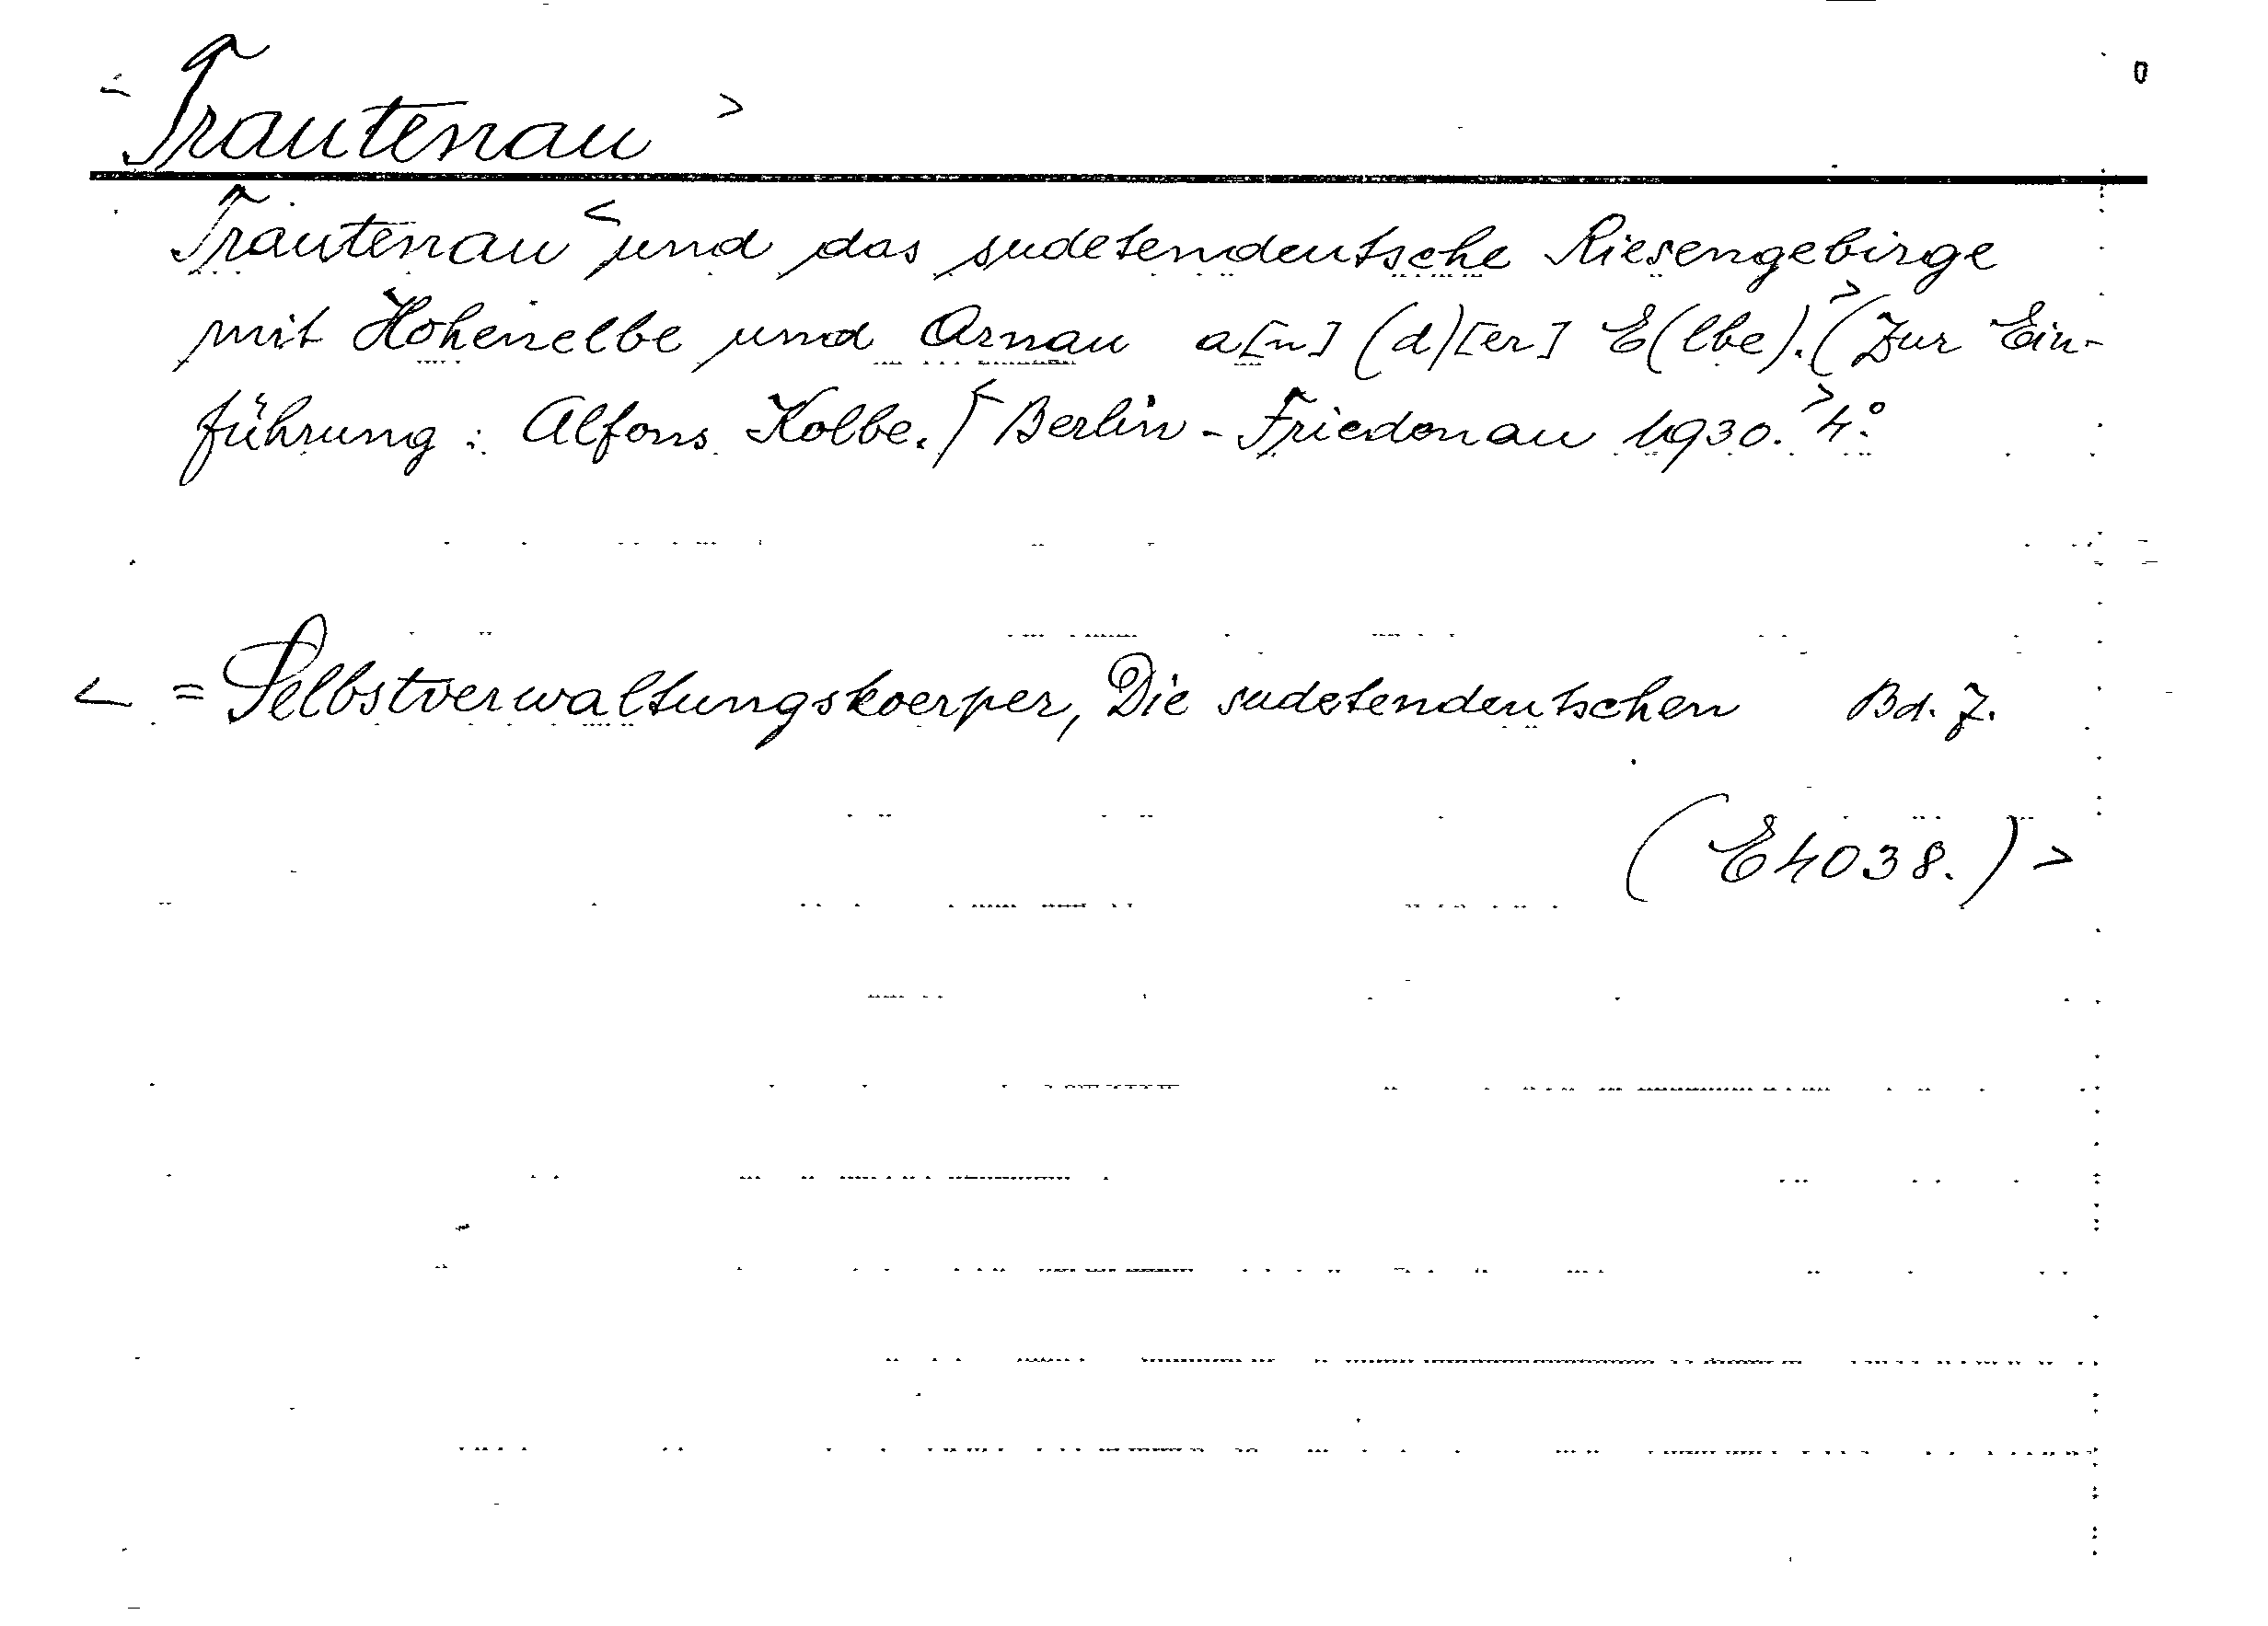 < Trautenau >
Trautenau < und das sudetendeutsche Riesengebirge
mit Hohenelbe und Arnau a[n] (d)[er] E(lbe). > (Zur Ein-
führung: Alfons Kolbe.) < Berlin-Friedenau 1930. > 4°.
< = Selbstverwaltungskoerper, Die sudetendeutschen Bd. 7.
(E4038.) >